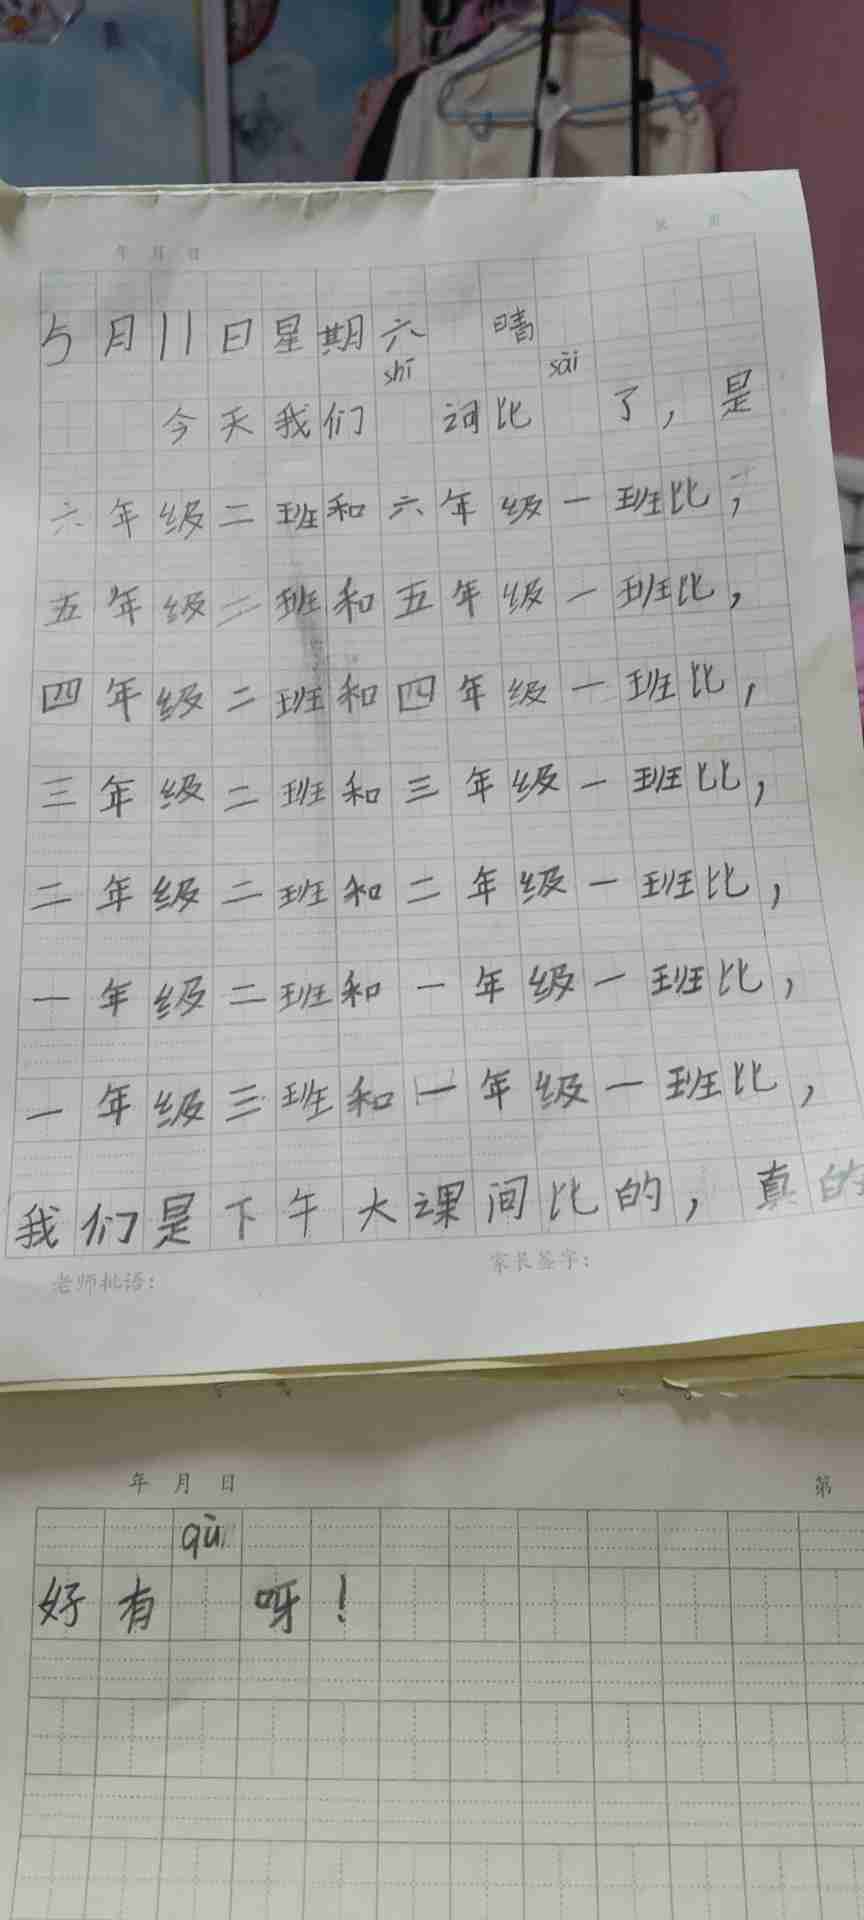 年 月 日
5月11日星期六 晴
shī sāi
今天我们 词比 了，是
六年级二班和六年级一班比，
五年级二班和五年级一班比，
四年级二班和四年级一班比，
三年级二班和三年级一班比，
二年级二班和二年级一班比，
一年级二班和一年级一班比，
一年级三班和一年级一班比，
我们是下午大课间比的，真的
老师批语： 家长签字：
年 月 日 第
qù
好有 呀！